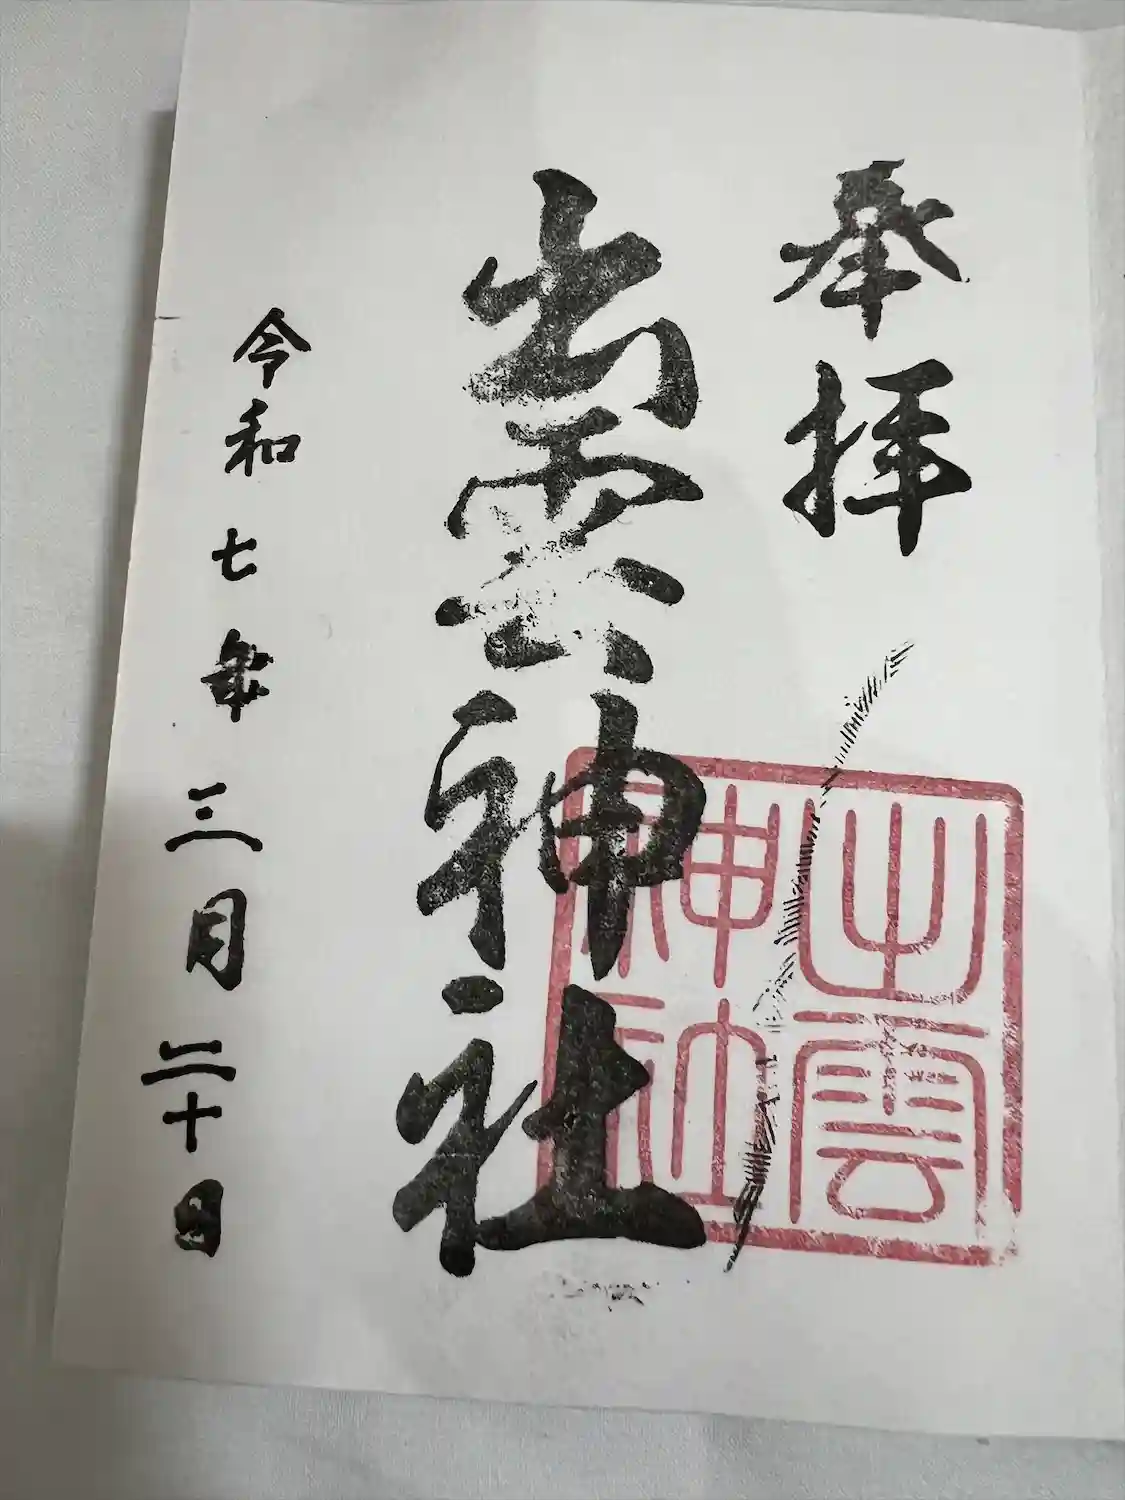 奉拝
出雲神社
出雲神社
令和七年三月二十日